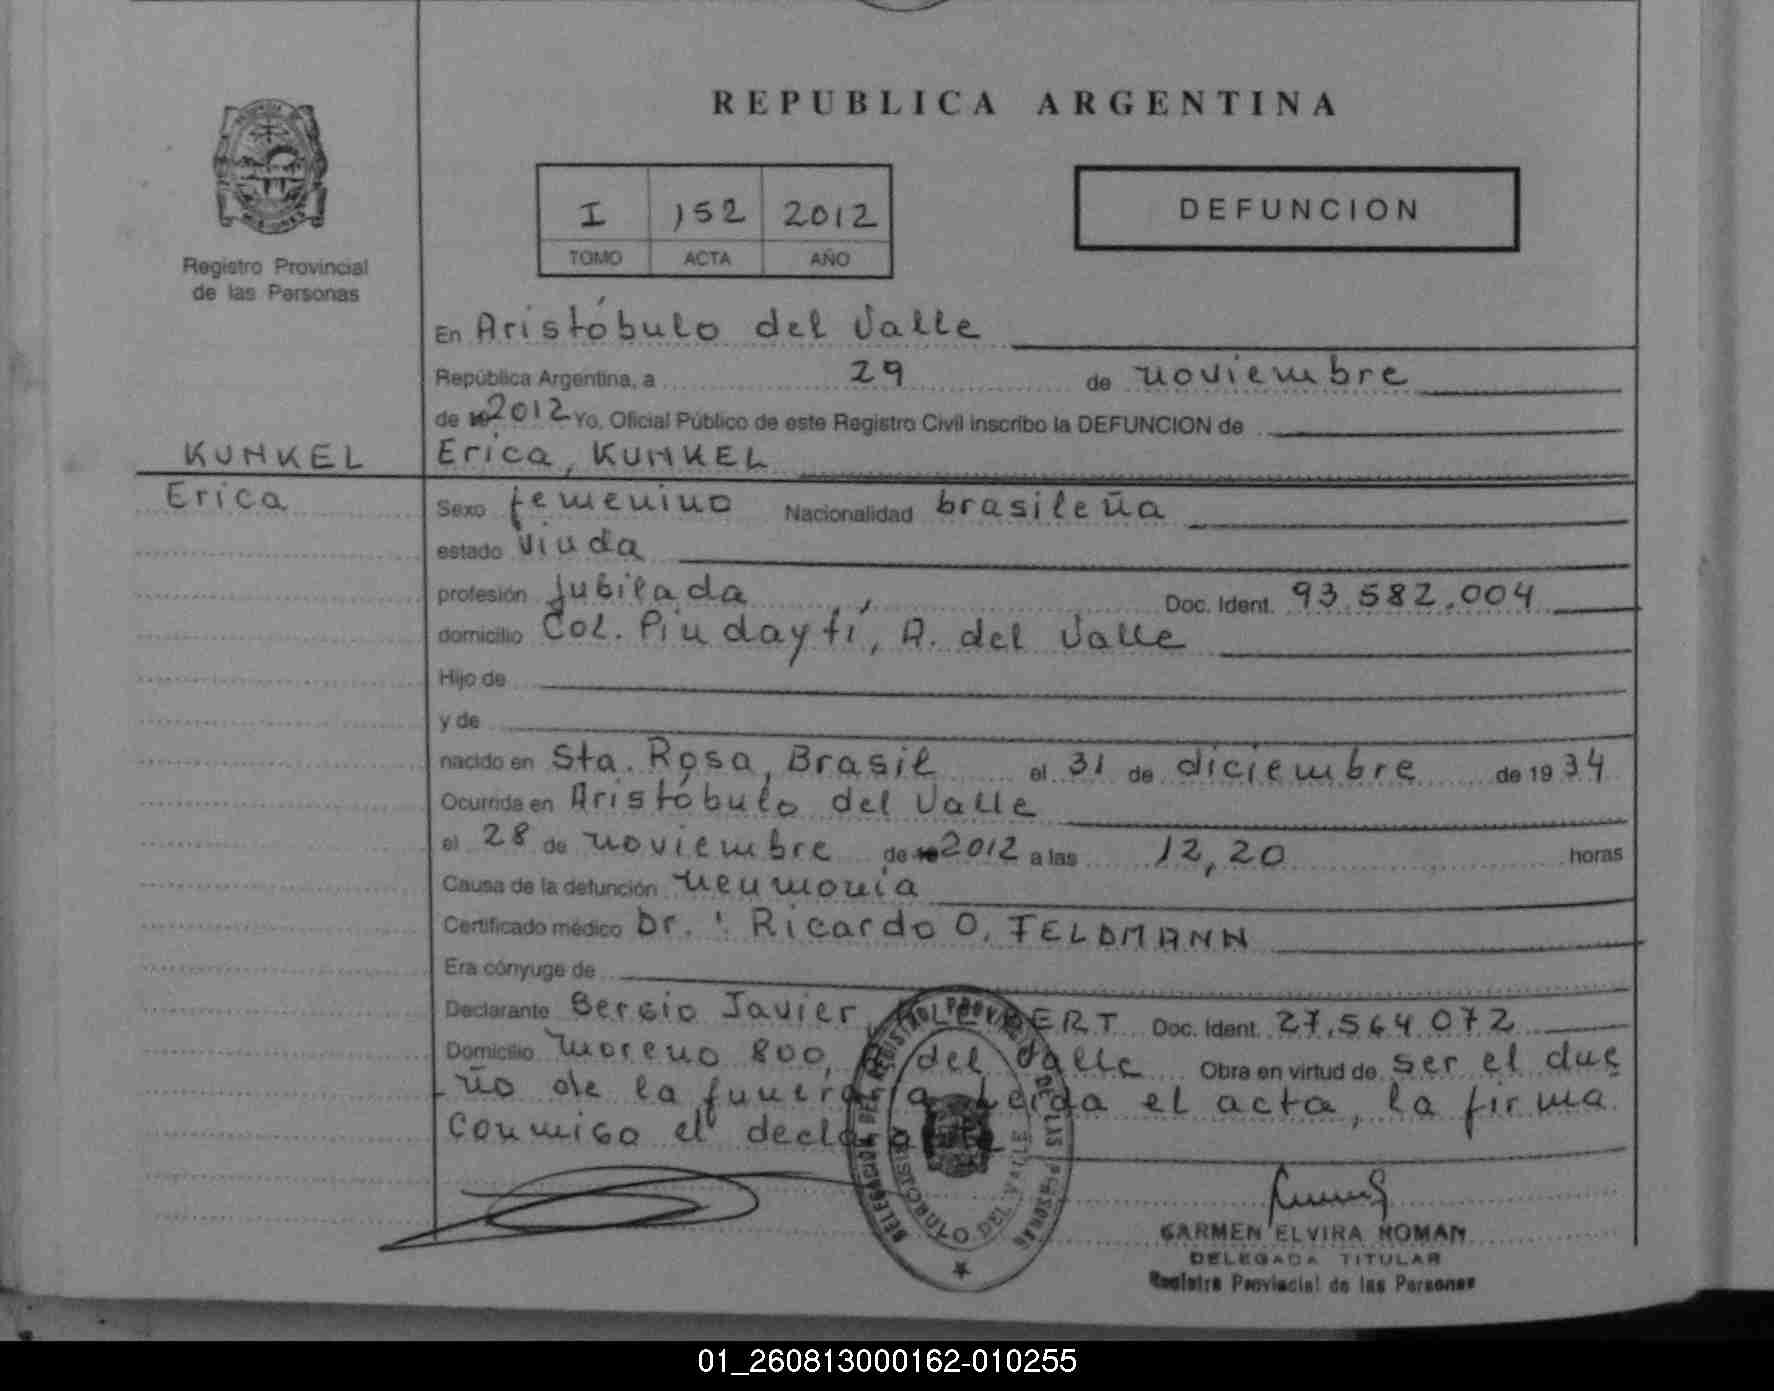 REPUBLICA ARGENTINA
I 152 2012
TOMO ACTA AÑO
DEFUNCION
Registro Provincial
de las Personas
En Aristóbulo del Valle
República Argentina, a 29 de noviembre
de 19 2012 Yo, Oficial Público de este Registro Civil inscribo la DEFUNCION de
KUNKEL
Erica, KUNKEL
Erica
Sexo femenino Nacionalidad brasileña
estado viuda
profesión jubilada Doc. Ident. 93.582.004
domicilio Col. Pindaytí, A. del Valle
Hijo de
y de
nacido en Sta. Rosa, Brasil el 31 de diciembre de 1934
Ocurrida en Aristóbulo del Valle
el 28 de noviembre de 19 2012 a las 12,20 horas
Causa de la defunción neumonía
Certificado médico Dr.: Ricardo O. FELDMANN
Era cónyuge de
Declarante Sergio Javier Doc. Ident. 27.564.072
Domicilio Moreno 800, A. del Valle Obra en virtud de ser el due
ño de la funeraria leída el acta, la firma
conmigo el
DELEGACION DEL REGISTRO PROVINCIAL DE LAS PERSONAS
ARISTOBULO DEL VALLE
CARMEN ELVIRA ROMAN
DELEGADA TITULAR
Registro Provincial de las Personas
01_260813000162-010255